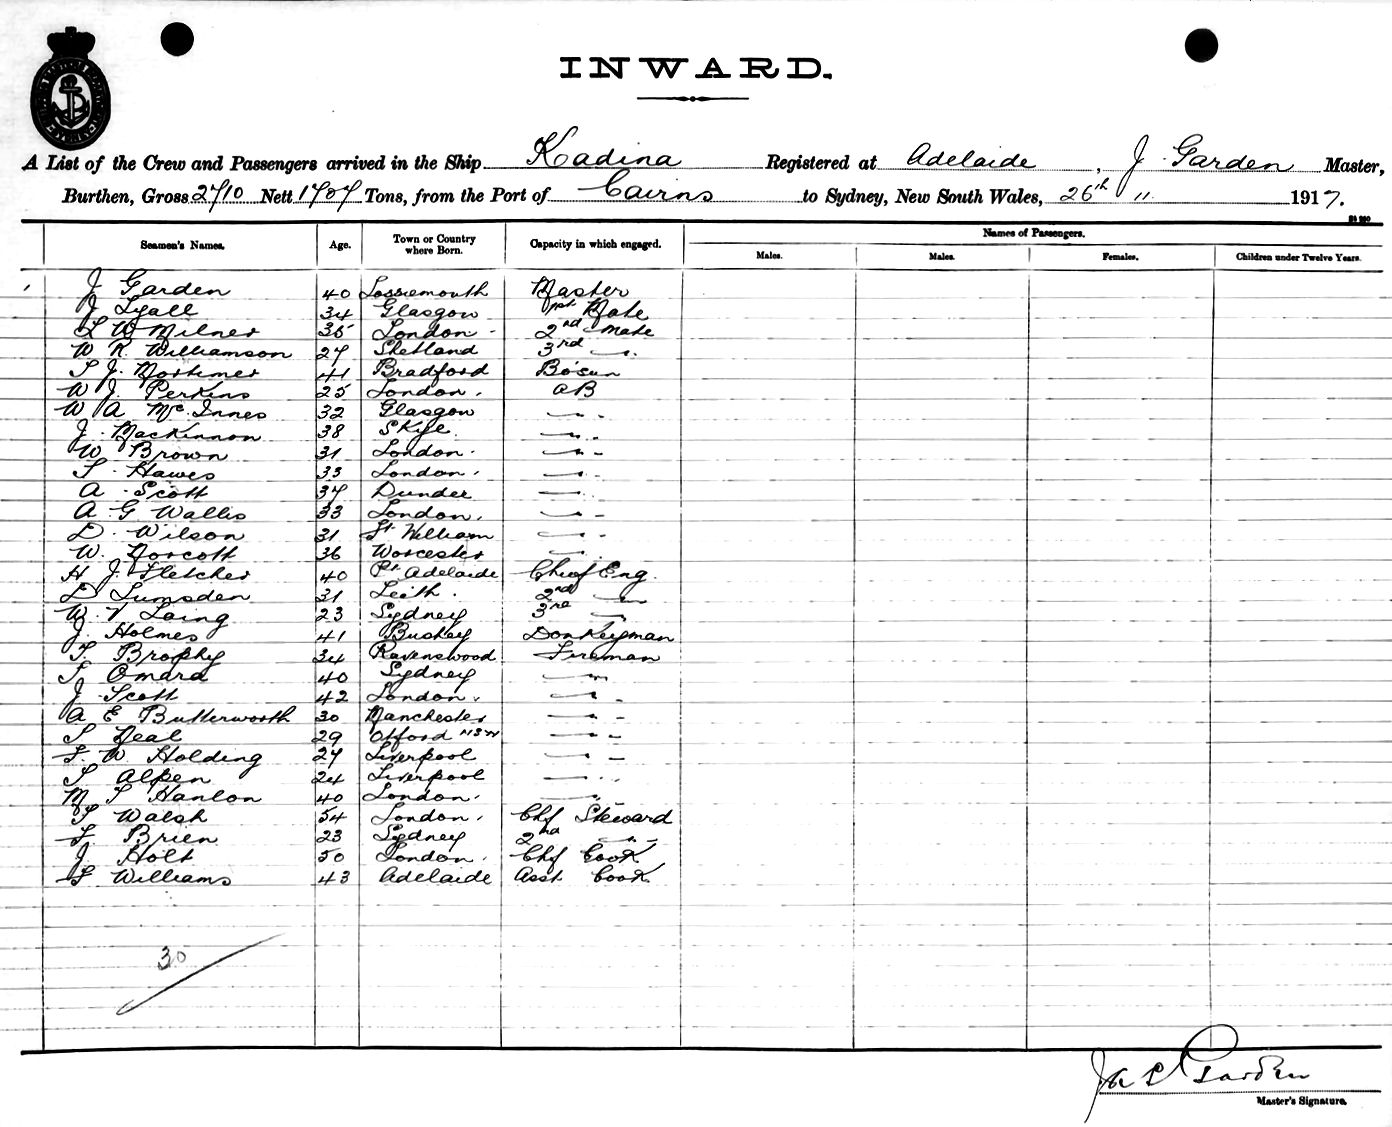 INWARD.
A List of the Crew and Passengers arrived in the Ship Kadina Registered at Adelaide, J Garden Master,
Burthen, Gross 2710 Nett 1707 Tons, from the Port of Cairns to Sydney, New South Wales, 26th 11 1917.
Names of Passengers.
Seamen's Names. Age. Town or Country where Born. Capacity in which engaged. Males. Males. Females. Children under Twelve Years.
J Garden 40 Lossiemouth Master
J Lyall 34 Glasgow 1st Mate
L W Milner 35 London 2nd Mate
W R Williamson 27 Shetland 3rd "
S J Mortimer 41 Bradford Bosun
W J Perkins 25 London. AB
W A McInnes 32 Glasgow "
J. MacKinnon 38 Skye "
W Brown 31 London. "
S. Hawes 33 London. "
A. Scott 37 Dundee "
A. G Wallis 33 London. "
D. Wilson 31 Ft William "
W. Norcott 36 Worcester "
H J Fletcher 40 Pt Adelaide Chief Eng.
D Lumsden 31 Leith. 2nd "
W. V Laing 23 Sydney 3rd "
J. Holmes 41 Bushey Donkeyman
T. Brophy 34 Ravenswood Fireman
T Omara 40 Sydney "
J Scott 42 London. "
A E Butterworth 30 Manchester "
S Neal 29 Otford NSW "
F. W Holding 27 Liverpool "
S Alpen 24 Liverpool "
M S Hanlon 40 London. "
S Walsh 54 London. Chf Steward
F Brien 23 Sydney 2nd "
J Holt 50 London. Chf Cook
F Williams 43 Adelaide Asst Cook
30
Jas Garden
Master's Signature.